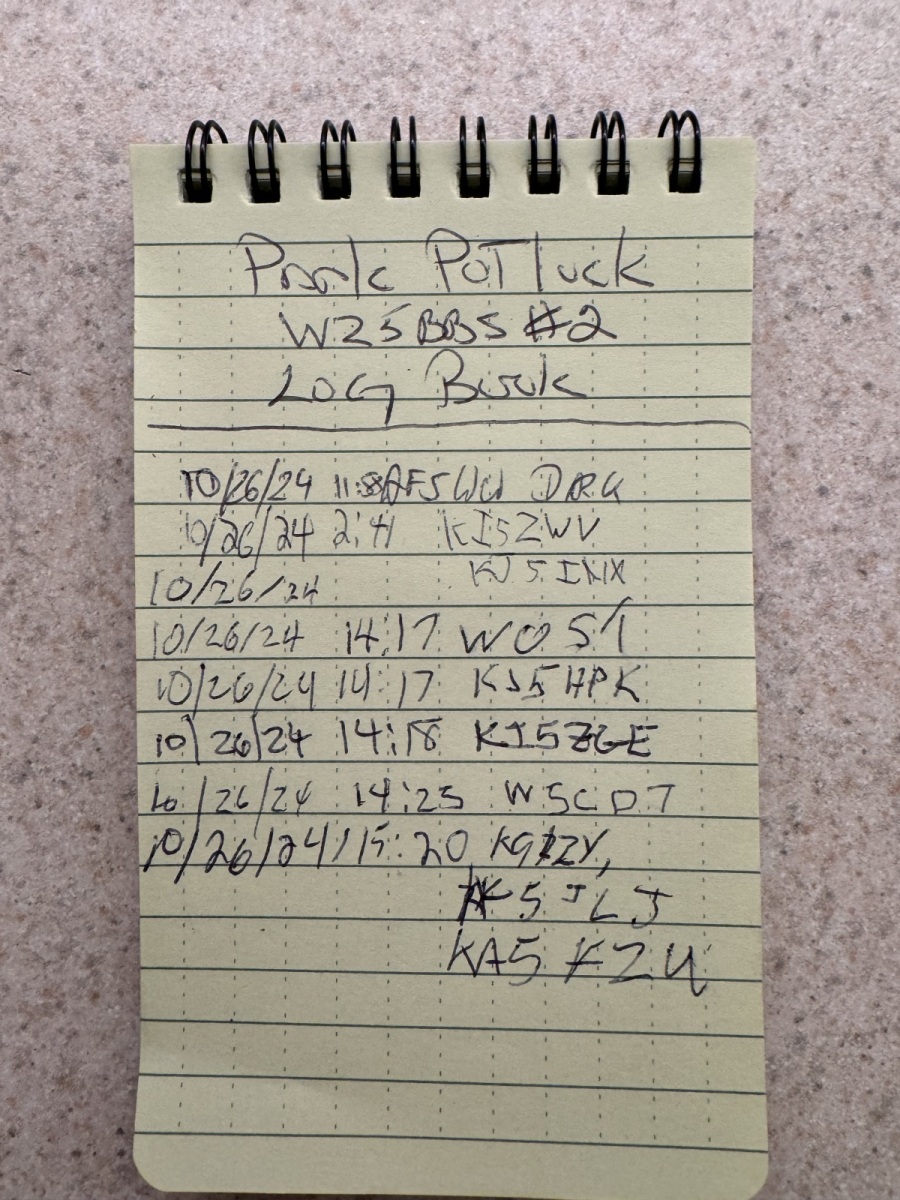 Park PoTluck
WZ5BBS #2
LOG Book
10/26/24 11:58 AF5WU
10/26/24 2:41 KI5ZWV
10/26/24 KJ5INX
10/26/24 14:17
10/26/24 14:17 KJ5HPK
10/26/24 14:18 KI5ZGE
10/26/24 14:25 W5CDT
10/26/24 15:20
KA5FZU